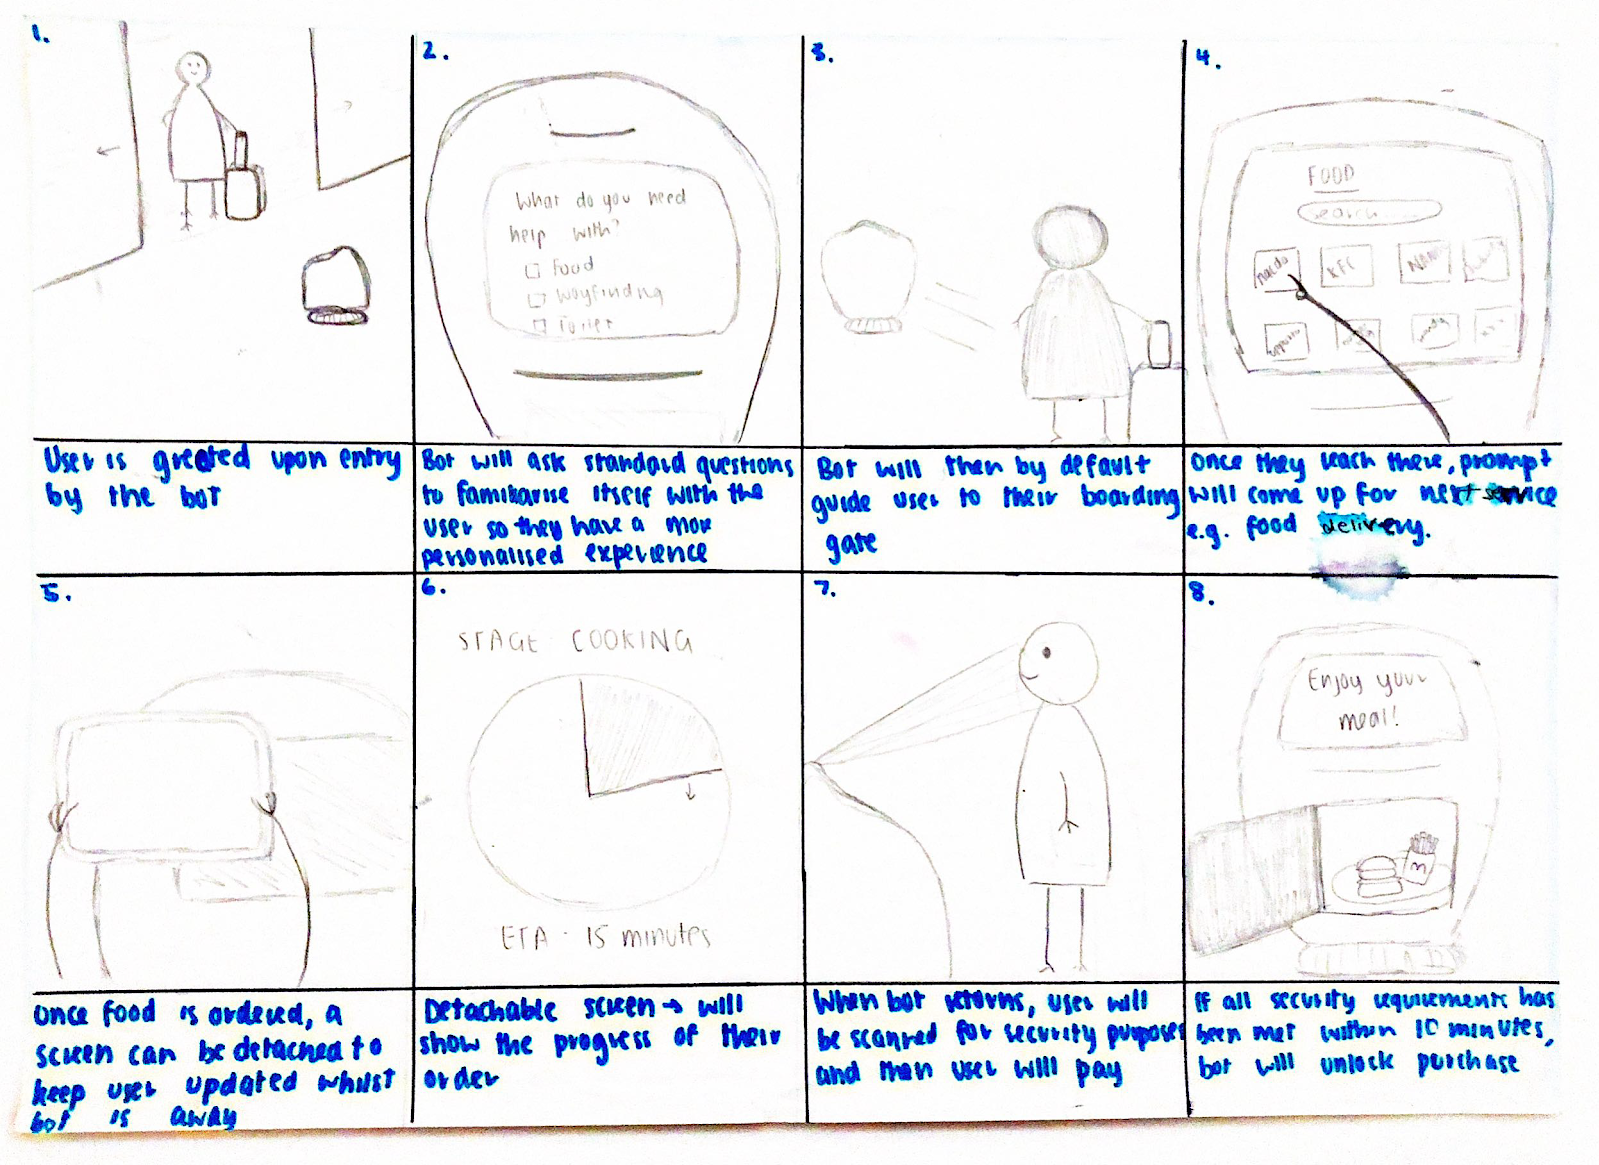 1.
User is greeted upon entry
by the bot
2.
What do you need
help with?
food
wayfinding
toilet
Bot will ask standard questions
to familiarise itself with the
user so they have a more
personalised experience
3.
Bot will then by default
guide user to their boarding
gate
4.
FOOD
search....
KFC
Once they reach there, prompt
will come up for next service
e.g. food delivery.
5.
Once food is ordered, a
screen can be detached to
keep user updated whilst
bot is away
6.
STAGE COOKING
ETA - 15 minutes
Detachable screen → will
show the progress of their
order
7.
When bot returns, user will
be scanned for security purposes
and then user will pay
8.
Enjoy your
meal!
m
If all security requirements has
been met within 10 minutes,
bot will unlock purchase